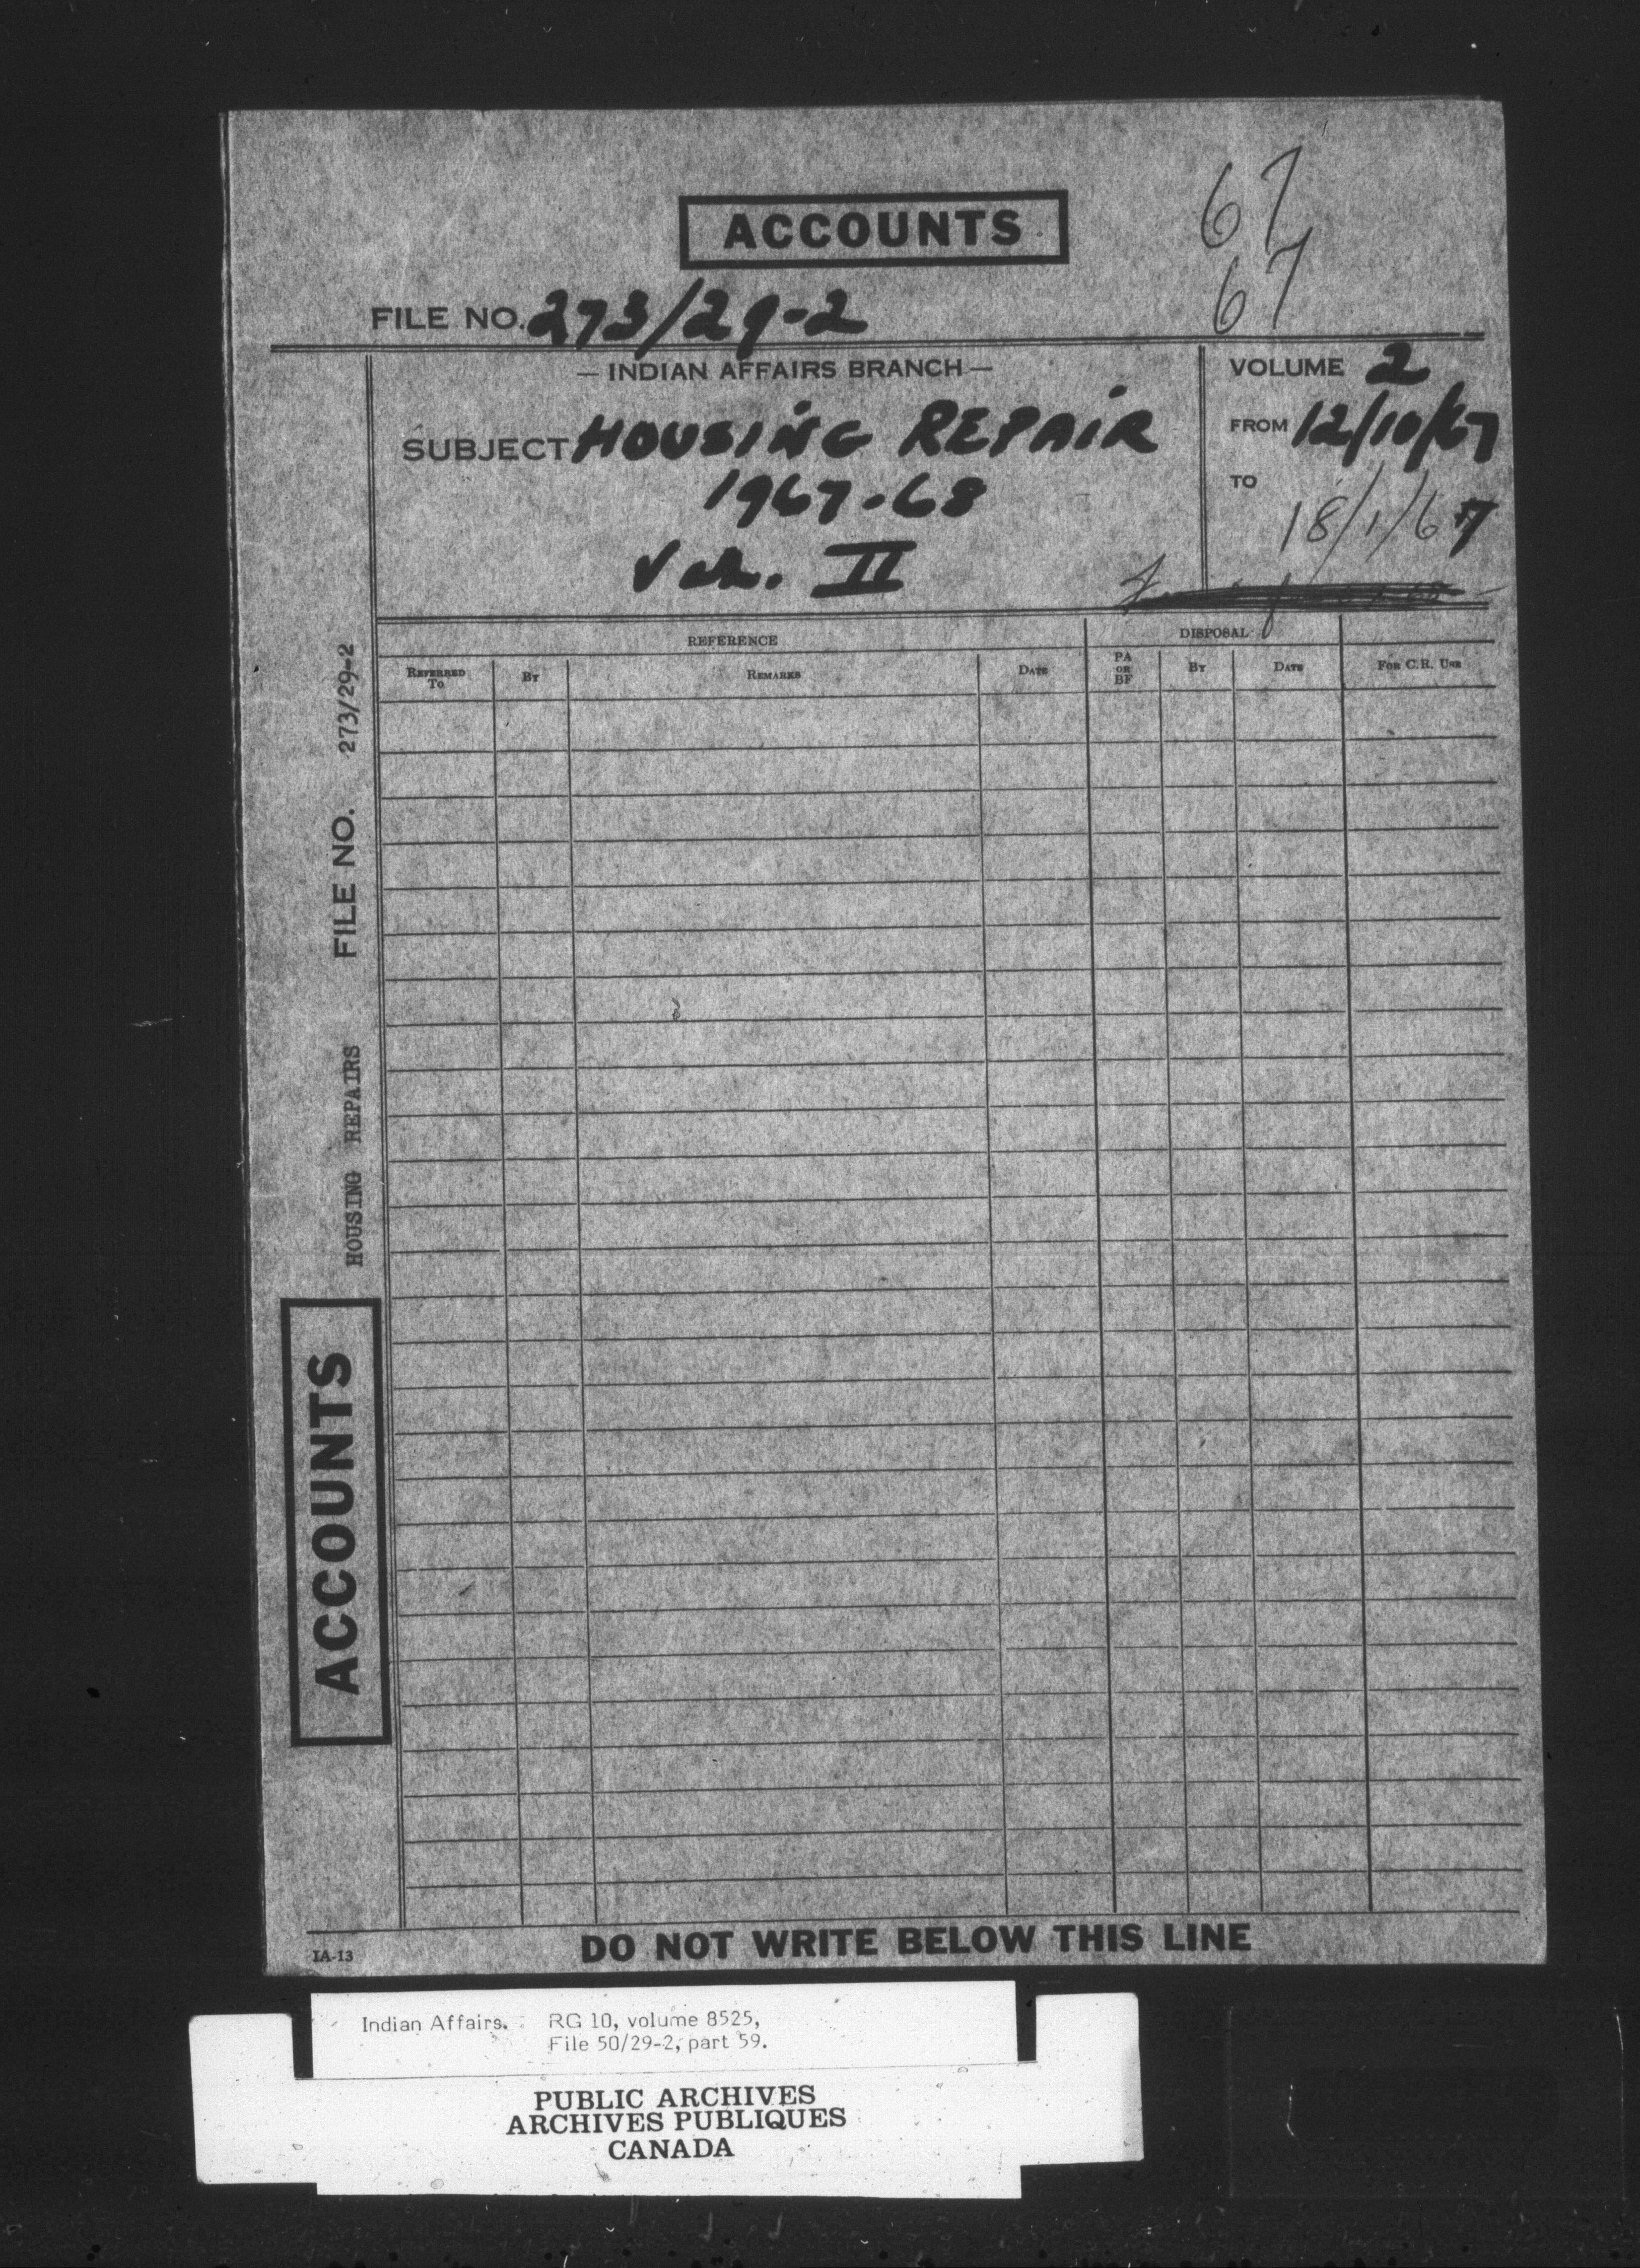 67
67
ACCOUNTS
FILE NO. 273/29-2
— INDIAN AFFAIRS BRANCH —
SUBJECT HOUSING REPAIR
1967-68
Vol. II
VOLUME 2
FROM 12/10/67
TO
18/1/67
REFERENCE
DISPOSAL
REFERRED TO
BY
REMARKS
DATE
PA OR BF
BY
DATE
FOR C.R. USE
FILE NO. 273/29-2
HOUSING REPAIRS
ACCOUNTS
IA-13
DO NOT WRITE BELOW THIS LINE
Indian Affairs. RG 10, volume 8525,
File 50/29-2, part 59.
PUBLIC ARCHIVES
ARCHIVES PUBLIQUES
CANADA